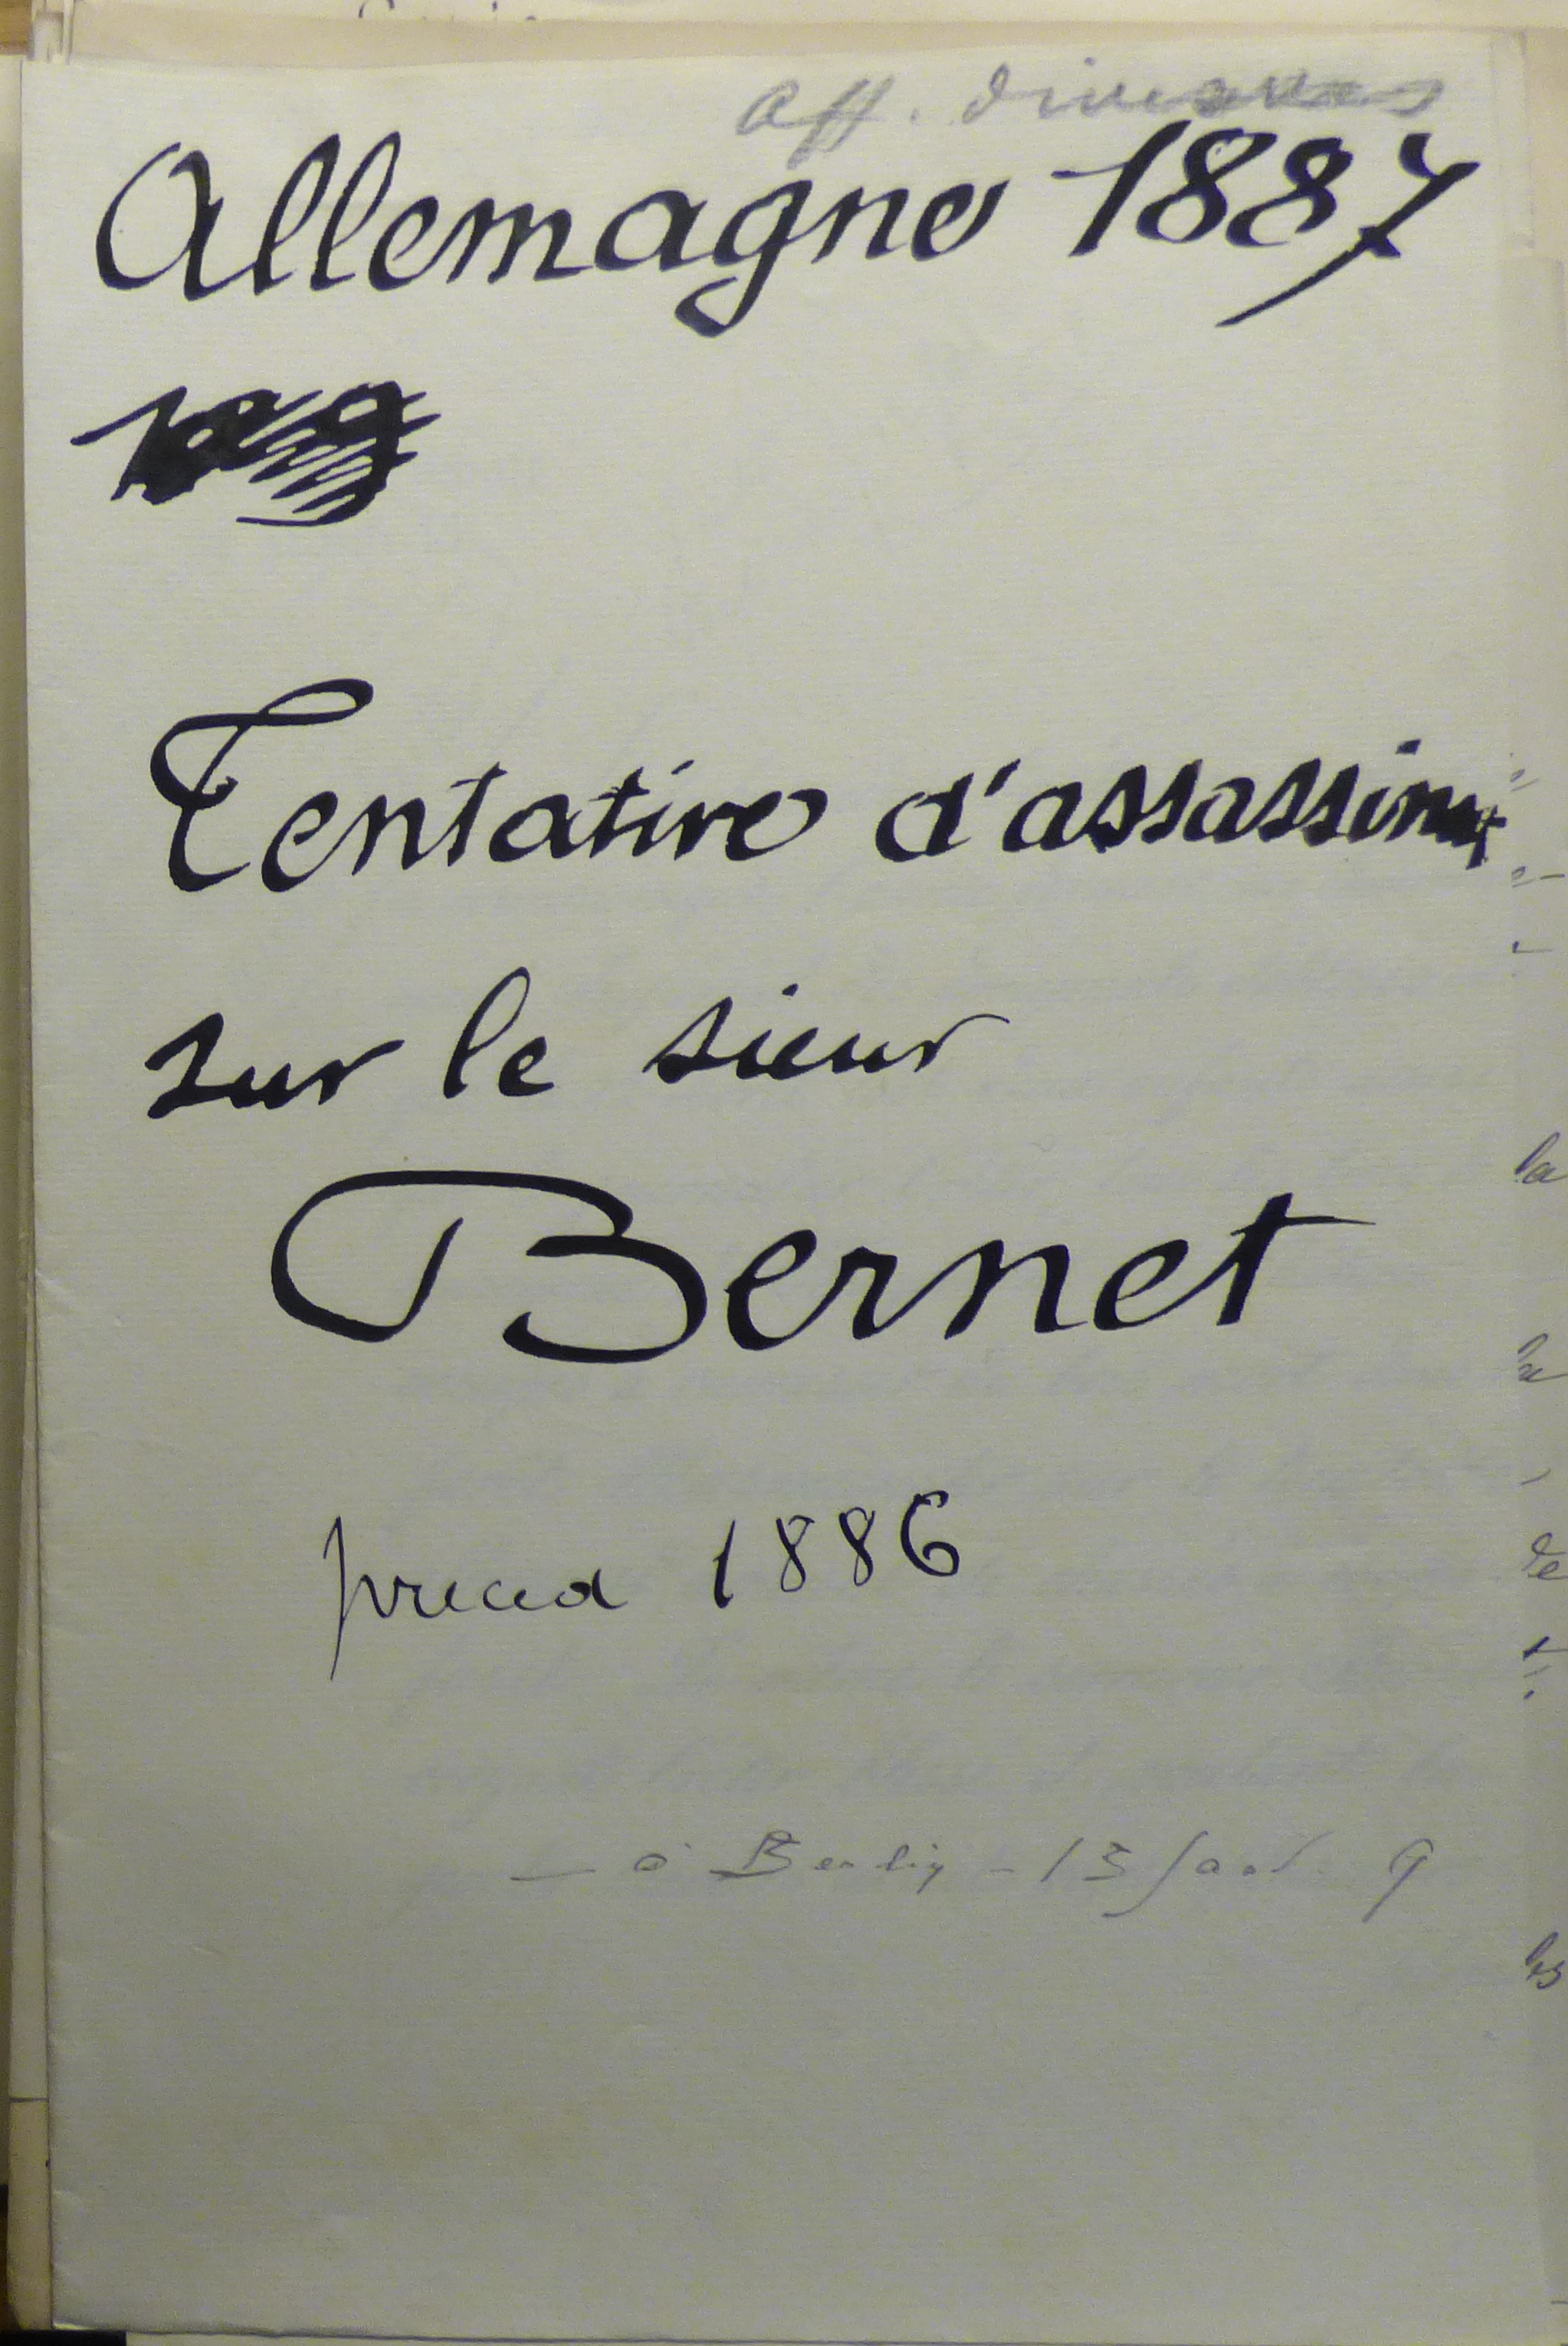 Aff. diverses
Allemagne 1887
Tentative d'assassinat
sur le sieur
Bernet
préced 1886
— à Berlin - 13
la
de
les